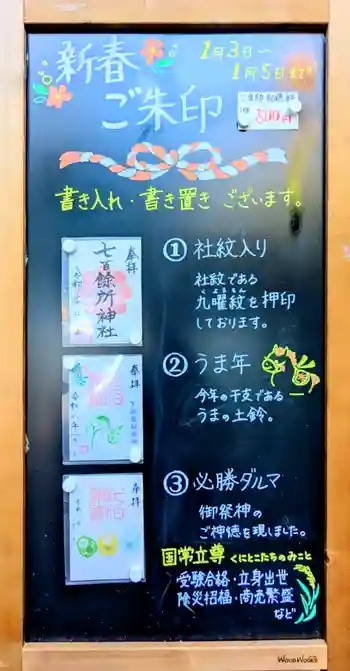 新春
ご朱印
1月3日〜
1月5日まで
書き入れ・書き置き ございます。
奉拝
七百餘所神社
① 社紋入り
社紋である
くようもん
九曜紋を押印
しております。
奉拝
② うま年
今年の干支である
うまの土鈴。
奉拝
③ 必勝ダルマ
御祭神の
ご神徳を現しました。
国常立尊 くにとこたちのみこと
受験合格・立身出世
除災招福・商売繁盛
など
WOODWOGS